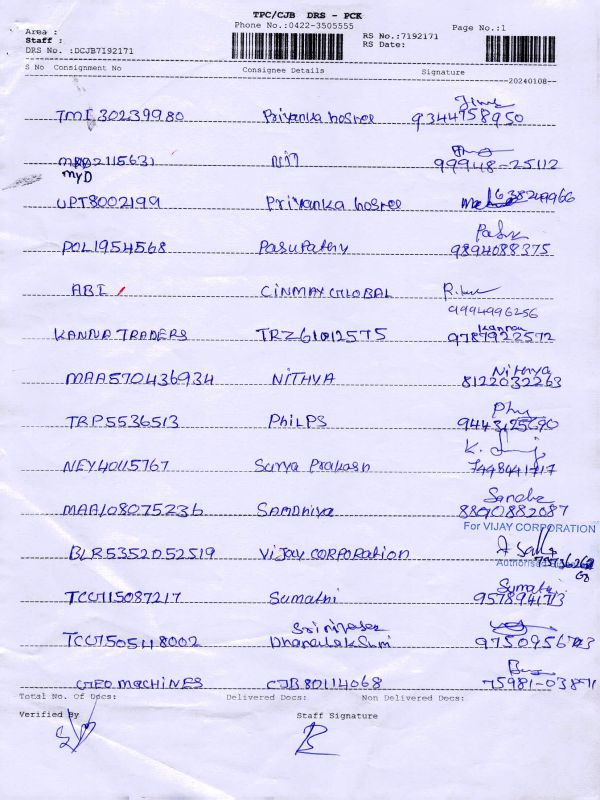 TPC/CJB DRS - PCK
Phone No.:0422-3505555
Area :
Staff :
DRS No. :DCJB7192171
RS No.:7192171
RS Date:
Page No.:1
S No Consignment No Consignee Details Signature
20240108
TMI30239980 Priyanka hosree 9344758950
2115631 NIT 99948-25112
MYD
UPT8002199 Priyanka hosree
POL1954568 Pasupathy 9894088375
ABI CINMAY GLOBAL
9994996256
KANNA TRADERS TRZ61012575 Kannan 9787922572
MAA570436934 NITHYA Nithya 8122032263
TRP5536513 PhiLPS
NEY40115767 Surya Prakash 7448441717
MAA108075236 SAMDhiya 8870882087
For VIJAY CORPORATION
BLR5352052519 VijAY CORPORATION
Authorised
TCU715087217 Sumathi Sumathi 9578941713
Srinivasa
TCU7505118002 Dhanalakshmi
GEO MACHINES CJB80114068 75981-03871
Total No. Of Docs: Delivered Docs: Non Delivered Docs:
Verified By Staff Signature